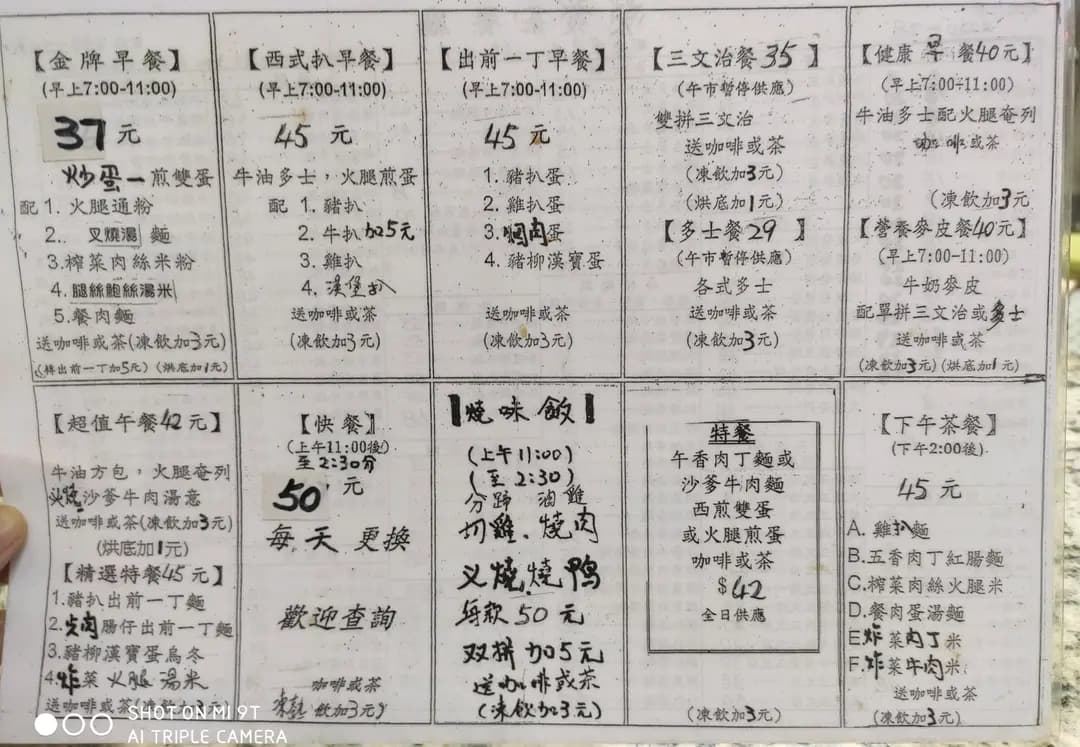 【金牌早餐】
(早上7:00-11:00)
37元
炒蛋一煎雙蛋
配 1. 火腿通粉
2. 叉燒湯麵
3.榨菜肉絲米粉
4.腿絲鮑絲湯米
5.餐肉麵
送咖啡或茶(凍飲加3元)
(轉出前一丁加5元)(烘底加1元)
【西式扒早餐】
(早上7:00-11:00)
45 元
牛油多士，火腿煎蛋
配 1. 豬扒
2. 牛扒加5元
3. 雞扒
4. 漢堡扒
送咖啡或茶
(凍飲加3元)
【出前一丁早餐】
(早上7:00-11:00)
45 元
1. 豬扒蛋
2. 雞扒蛋
3. 焗肉蛋
4. 豬柳漢寶蛋
送咖啡或茶
(凍飲加3元)
【三文治餐35】
(午市暫停供應)
雙拼三文治
送咖啡或茶
(凍飲加3元)
(烘底加1元)
【多士餐29】
(午市暫停供應)
各式多士
送咖啡或茶
(凍飲加3元)
【健康早餐40元】
(早上7:00-11:00)
牛油多士配火腿奄列
咖啡或茶
(凍飲加3元
【營養麥皮餐40元】
(早上7:00-11:00)
牛奶麥皮
配單拼三文治或多士
送咖啡或茶
(凍飲加3元)(烘底加1元)
【超值午餐42元】
牛油方包，火腿奄列
沙爹牛肉湯意
送咖啡或茶(凍飲加3元)
(烘底加1元)
【精選特餐45元】
1.豬扒出前一丁麵
2.肉腸仔出前一丁麵
3.豬柳漢寶蛋烏冬
4.炸菜火腿湯米
送咖啡或茶
【快餐】
(上午11:00後)
至2:30分
50元
每天更換
歡迎查詢
咖啡或茶
飲加3元)
【燒味飯】
(上午11:00)
(至2:30)
分蹄 油雞
切雞、燒肉
叉燒、燒鴨
每款50元
双拼加5元
送咖啡或茶
(凍飲加3元)
特餐
午香肉丁麵或
沙爹牛肉麵
西煎雙蛋
或火腿煎蛋
咖啡或茶
$42
全日供應
(凍飲加3元)
【下午茶餐】
(下午2:00後)
45元
A. 雞扒麵
B.五香肉丁紅腸麵
C.榨菜肉絲火腿米
D.餐肉蛋湯麵
E.炸菜肉丁米
F.炸菜牛肉米
送咖啡或茶
(凍飲加3元)
SHOT ON MI 9T
AI TRIPLE CAMERA